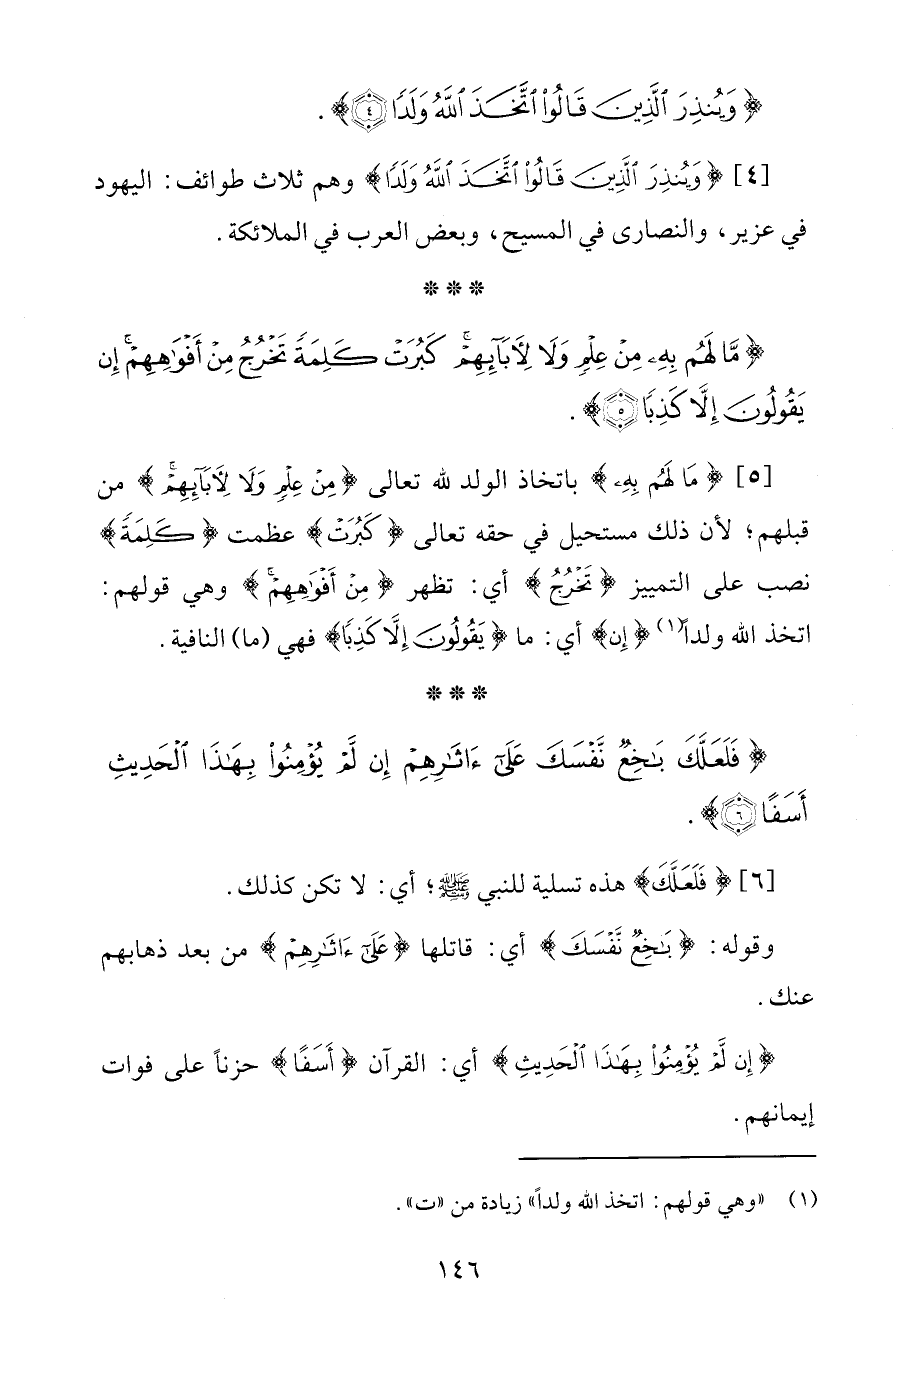 ﴿ وَيُنذِرَ ٱلَّذِينَ قَالُوا۟ ٱتَّخَذَ ٱللَّهُ وَلَدًا ٤ ﴾ .
[٤] ﴿ وَيُنذِرَ ٱلَّذِينَ قَالُوا۟ ٱتَّخَذَ ٱللَّهُ وَلَدًا ﴾ وهم ثلاث طوائف: اليهود
في عزير، والنصارى في المسيح، وبعض العرب في الملائكة.
* * *
﴿ مَّا لَهُم بِهِۦ مِنْ عِلْمٍ وَلَا لِأٓبَآئِهِمْ ۚ كَبُرَتْ كَلِمَةً تَخْرُجُ مِنْ أَفْوَٰهِهِمْ ۚ إِن
يَقُولُونَ إِلَّا كَذِبًا ٥ ﴾ .
[٥] ﴿ مَا لَهُم بِهِۦ ﴾ باتخاذ الولد لله تعالى ﴿ مِنْ عِلْمٍ وَلَا لِأٓبَآئِهِمْ ۚ ﴾ من
قبلهم؛ لأن ذلك مستحيل في حقه تعالى ﴿ كَبُرَتْ ﴾ عظمت ﴿ كَلِمَةً ﴾
نصب على التمييز ﴿ تَخْرُجُ ﴾ أي: تظهر ﴿ مِنْ أَفْوَٰهِهِمْ ۚ ﴾ وهي قولهم:
اتخذ الله ولداً(١) ﴿ إِن ﴾ أي: ما ﴿ يَقُولُونَ إِلَّا كَذِبًا ﴾ فهي (ما) النافية.
* * *
﴿ فَلَعَلَّكَ بَٰخِعٌ نَّفْسَكَ عَلَىٰٓ ءَاثَٰرِهِمْ إِن لَّمْ يُؤْمِنُوا۟ بِهَٰذَا ٱلْحَدِيثِ
أَسَفًا ٦ ﴾ .
[٦] ﴿ فَلَعَلَّكَ ﴾ هذه تسلية للنبي ﷺ؛ أي: لا تكن كذلك.
وقوله: ﴿ بَٰخِعٌ نَّفْسَكَ ﴾ أي: قاتلها ﴿ عَلَىٰٓ ءَاثَٰرِهِمْ ﴾ من بعد ذهابهم
عنك.
﴿ إِن لَّمْ يُؤْمِنُوا۟ بِهَٰذَا ٱلْحَدِيثِ ﴾ أي: القرآن ﴿ أَسَفًا ﴾ حزناً على فوات
إيمانهم.
(١) «وهي قولهم: اتخذ الله ولداً» زيادة من «ت».
١٤٦